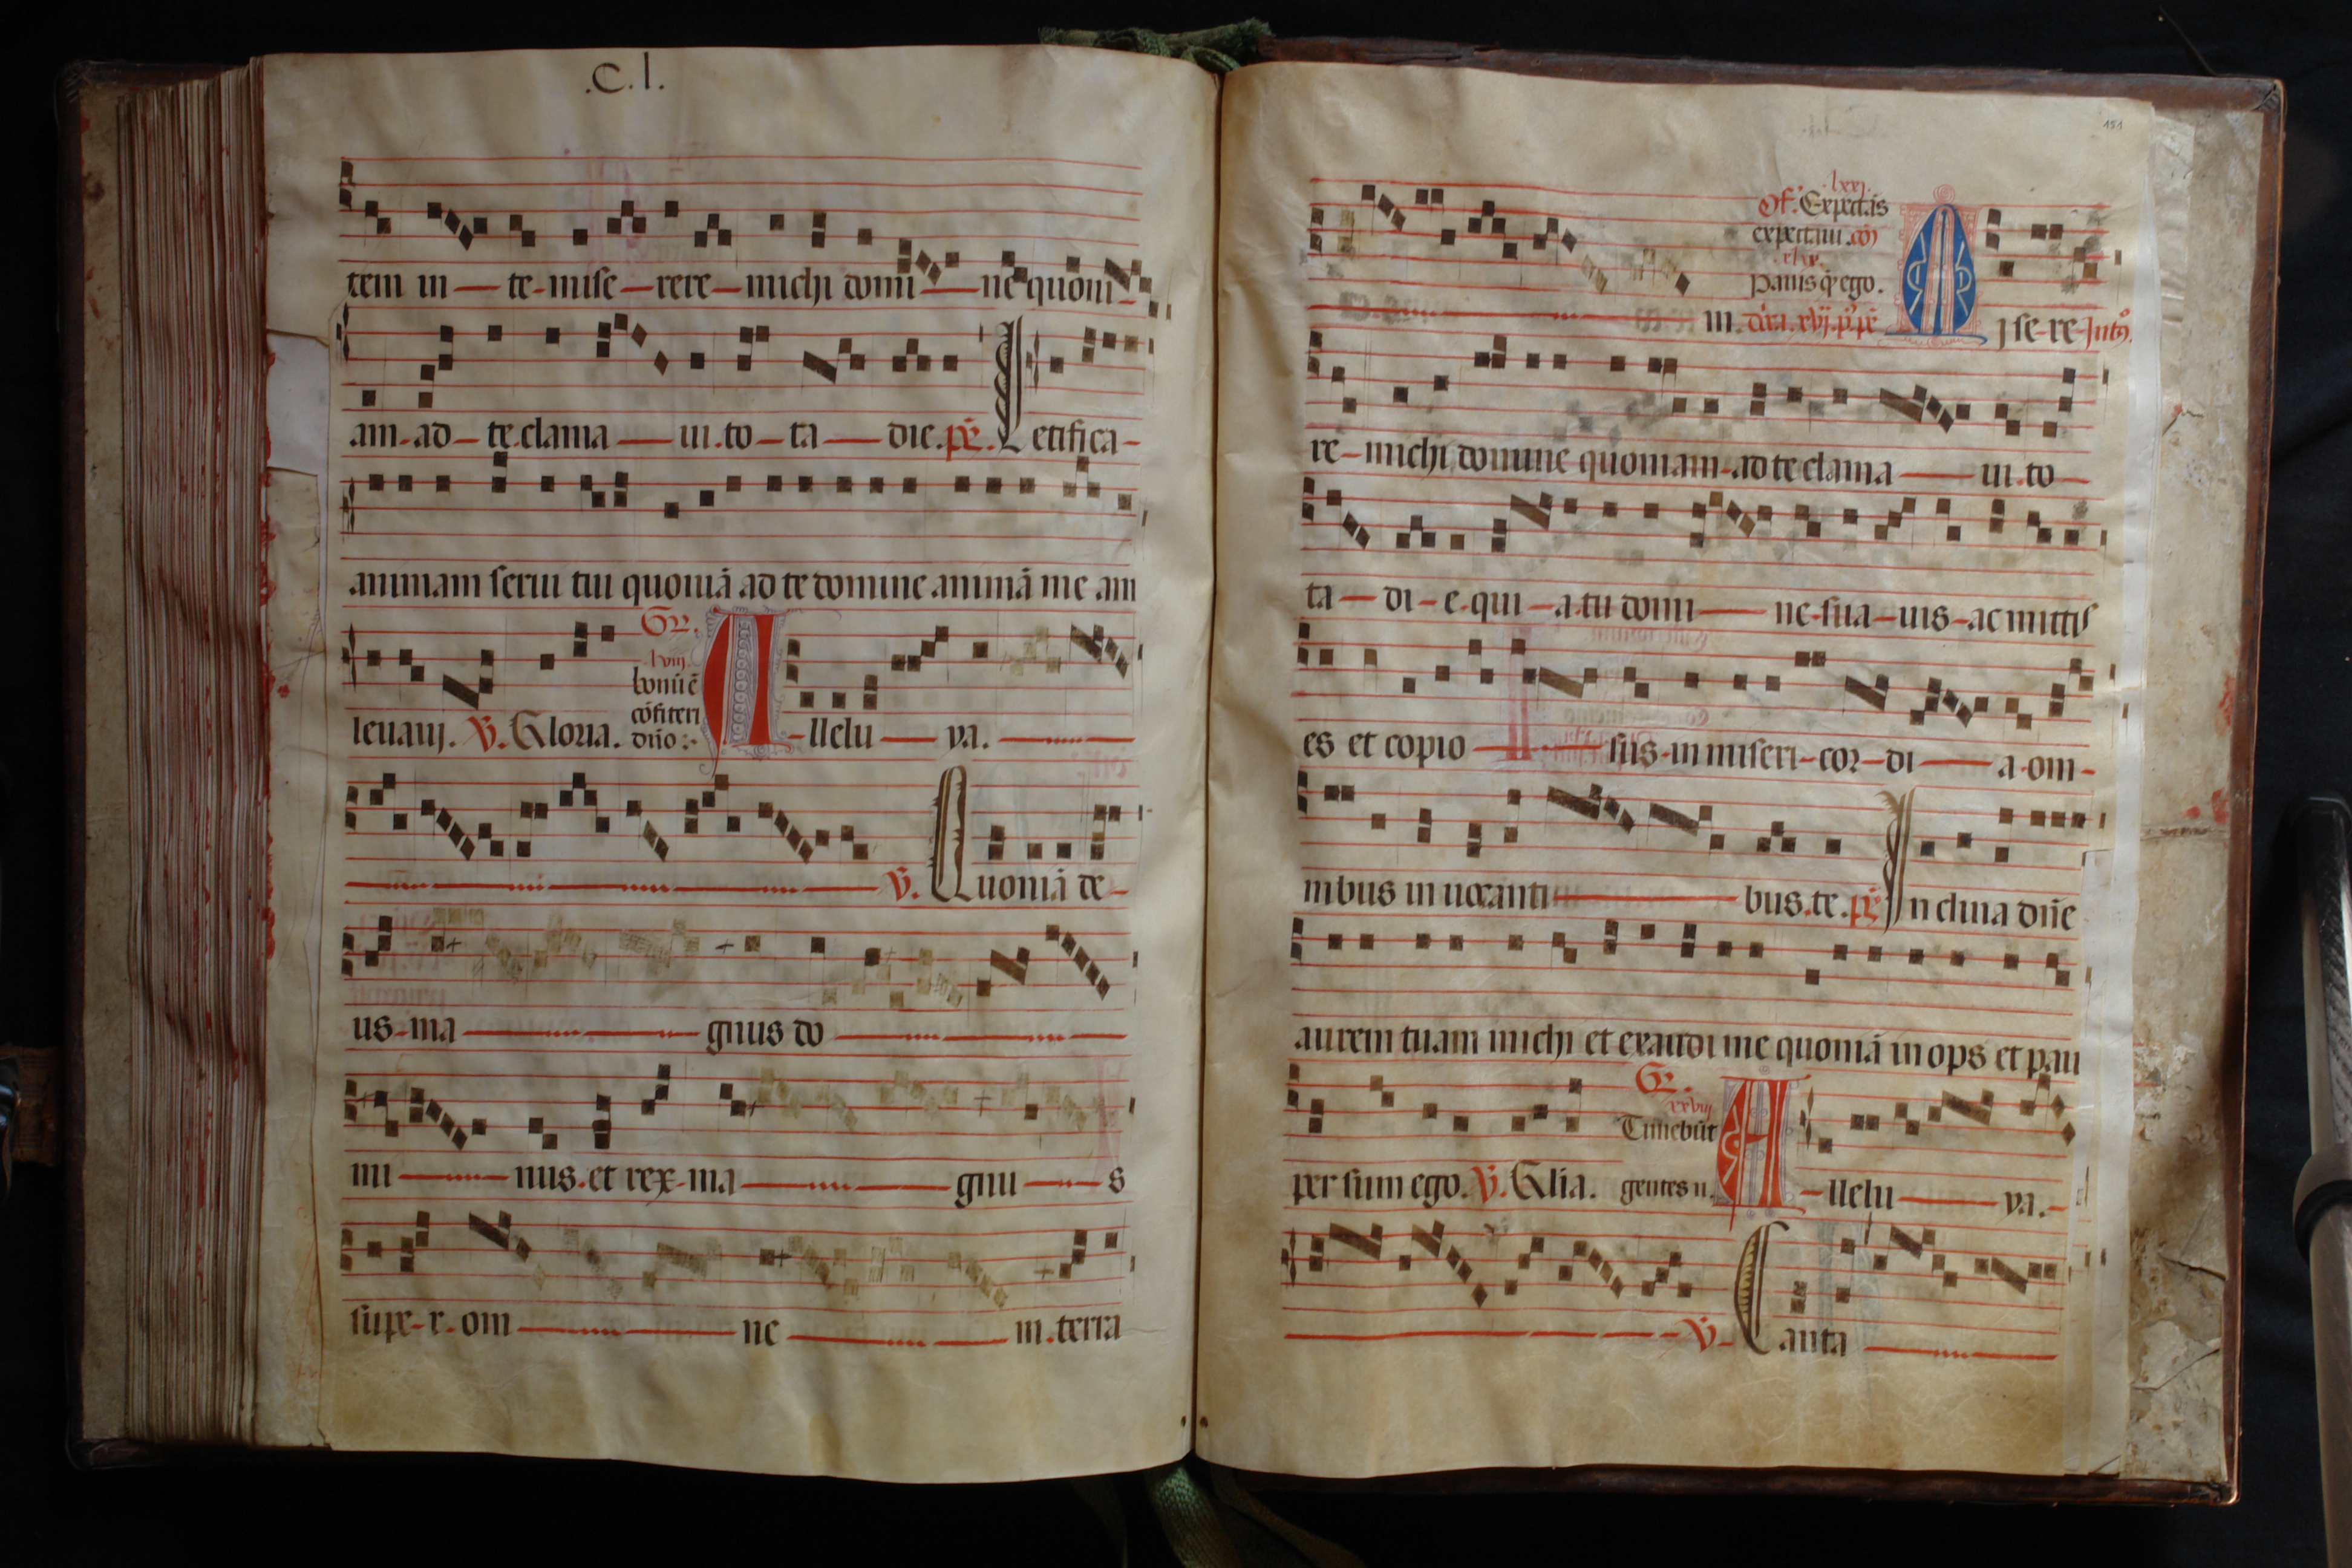 .C.l.
tem in te miserere michi domine quoni
am ad te clama ui to ta die. ps. Letifica
animam serui tui quoniā ad te domine animā me am
leuaui. V. Gloria.
Gr. lviij.
bonū ē
cōfiteri
dn̄o:
Allelu ya.
V. Quoniā de
us ma gnus do
mi nus et rex ma gnu s
supe r om ne m terra
151
lxxj.
Of. Expectās
expectaui. cō
Panis q̄ ego.
m. Misere
re michi domine quoniam ad te clama ui to
ta di e qui a tu domi ne sua uis ac mitis
es et copio sus in misericordi a om
nibus inuocanti bus te. ps. Inclina dn̄e
aurem tuam michi et exaudi me quoniā inops et pau
per sum ego. V. Glīa.
Gr. xxviij
Timebūt
gentes n.
Allelu ya.
V. Canta